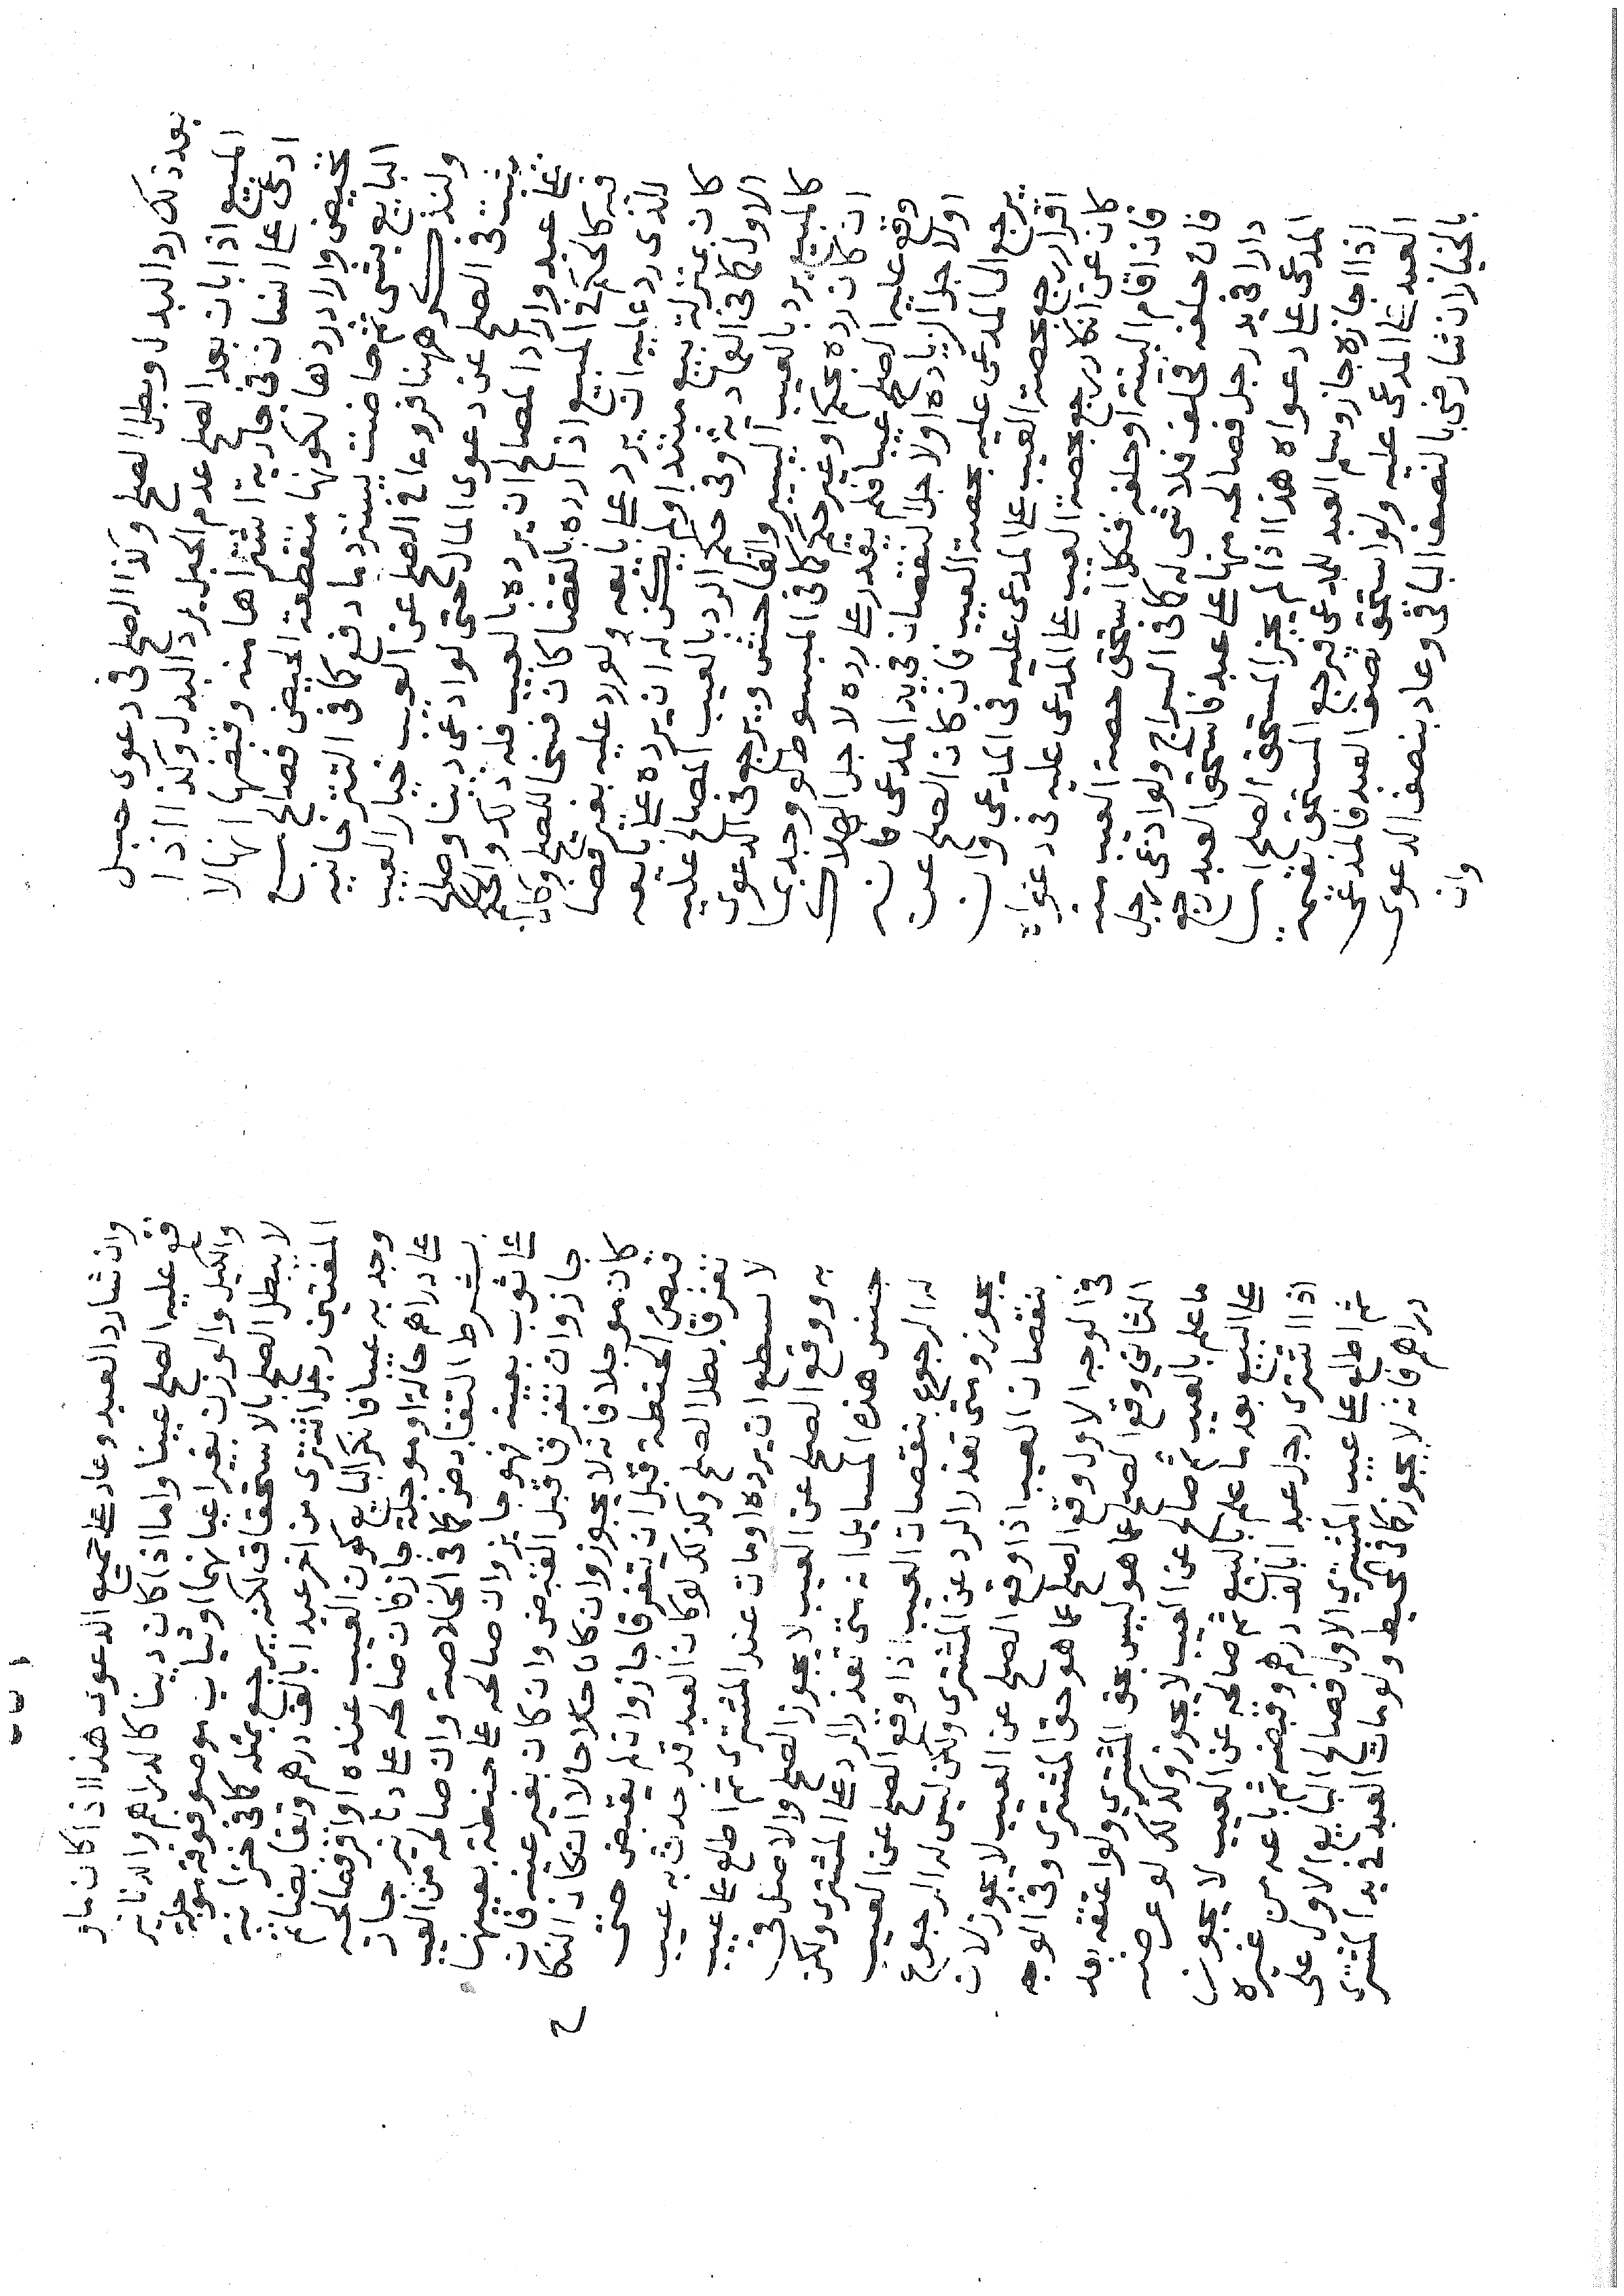 بعد ذلك رد البدل وبطل الصلح وكذا الصلح فى دعوى حبل
المبيع اذا بان بعد الصلح عدم الحبل يرد البدل وكذا اذا
ادعى على انسان فى جارية اشتراها منه وقبضها انها لا
تحيض واراد ردها لكونها منقطعة الحيض فصالح مع
البايع بشئ ثم حاضت يسترد ما دفع كما فى التترخانيه
ولنذكر ههنا فروعا فى الصلح عن العيب خيار العيب
يثبت فى الصلح عن دعوى المال حتى لو ادعى دينا وصالح
على عبد واراد المصالح ان يرده بالعيب فله ذلك والحكم
فيه كالحكم فى المبيع اذا رده بالقضا كان فسخا للصلح وكان
للذى رد عليه ان يرد على بايعه ولو رد عليه بغير قضا
كان بمنزلة بيع مبتدا ولم يكن له ان يرده على بايعه
الاول كما فى العمادية وفى حكم الرد بالعيب المصالح عليه
كالمبيع يرد بالعيب اليسير والفاحش ويرجع فى الدعوى
ان كان رده بحكم او غير حكم كما فى المبسوط ولو وجد بما
وقع عليه الصلح عيبا فلم يقدر على رده لاجل الهلاك
او لاجل الزيادة او لاجل النقصان فى يد المدعى فانه
يرجع الى المدعى عليه بحصة العيب فان كان الصلح عن
اقرار رجع بحصة العيب على المدعى عليه فى المدعى وان
كان عن انكار رجع بحصة العيب على المدعى عليه فى دعواه
فان اقام البينة او حلفه فنكل استحق حصة العيب منه
فان حلفه فحلف فلا شى له كما فى السراج ولو ادعى رجل
دارا فى يد رجل فصالحه منها على عبد فاستحق العبد رجع
المدعى على دعواه هذا اذا لم يجز المستحق الصلح اما
اذا اجازه جاز وسلم العبد للمدعى فيرجع المستحق بقيمة
العبد على المدعى عليه ولو استحق نصف العبد فالمدعى
بالخيار ان شا رضى بالنصف الباقى وعاد بنصف الدعوى
وان
وان شا رد العبد وعاد على جميع الدعوى هذا اذا كان ما و
قع عليه الصلح عينا واما اذا كان دينا كالدراهم والدنانير
والكيل والوزن بغير اعيانهما او ثياب موصوفة مؤجلة
لا يبطل الصلح بالاستحقاق لكنه يرجع بمثله كما فى خزانة
المفتين رجل اشترى من اخر عبدا بالف درهم وتقابضا ثم
وجد به عيبا فانكر البايع كون العيب عنده او اقر فصالحه
على دراهم حالة او موجلة جاز فان صالحه على دنانير جاز
بشرط التقابض كما فى الخلاصة وان صالحه من العيب
على ثوب بعينه فهو جايز وان صالحه على حنطة بعينها
جاز وان تفرقا قبل القبض وان كان بغير عينه فان
كان موجلا فانه لا يجوز وان كان حالا ان كان النكا
قبض الحنطة قبل ان يتفرقا جاز وان لم يقبض حتى
تفرقا بطل الصلح وكذلك لو كان العبد قد حدث به عيب
لا يسطع ان يرده او مات عند المشترى ثم اطلع على عيب
به ووقع الصلح عن العيب لا يجوز الصلح والاصل فى
جنس هذه المسايل انه متى تعذر الرد على المشترى ولكن
له الرجوع بنقصان العيب اذا وقع الصلح عن العيب
يجوز ومتى تعذر الرد عن المشترى ولكن ليس له الرجوع
بنقصان العيب اذا وقع الصلح عن العيب لا يجوز لان
فى الوجه الاول وقع الصلح عما هو حق المشترى وفى الوجه
الثانى وقع الصلح عما هو ليس بحق المشترى ولو اعتقه بعد
ما علم بالعيب ثم صالح عن العيب لا يجوز وكذلك لو عرضه
على البيع بعد ما علم بالبيع ثم صالحه عن العيب لا يجوز
اذا اشترى رجل عبدا بالف درهم وقبضه ثم باعه من غيره
ثم اطلع على عيب المشترى الاول فصالح البايع الاول على
دراهم فانه لا يجوز كما فى المحيط ولو مات العبد فى يد المشترى